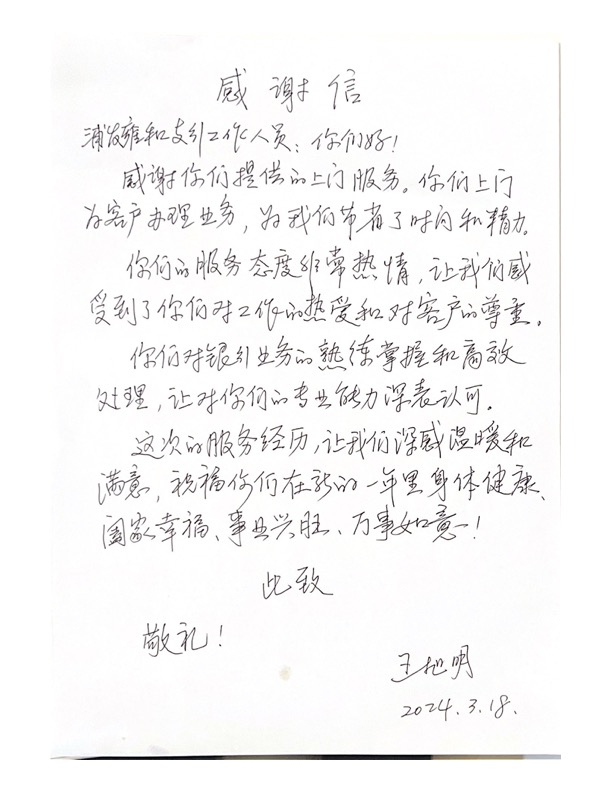 感谢信
浦发雍和支行工作人员：你们好！
感谢你们提供的上门服务。你们上门
为客户办理业务，为我们节省了时间和精力。
你们的服务态度非常热情，让我们感
受到了你们对工作的热爱和对客户的尊重。
你们对银行业务的熟练掌握和高效
处理，让对你们的专业能力深表认可。
这次的服务经历，让我们深感温暖和
满意，祝福你们在新的一年里身体健康、
阖家幸福、事业兴旺、万事如意！
此致
敬礼！
王旭明
2024.3.18.